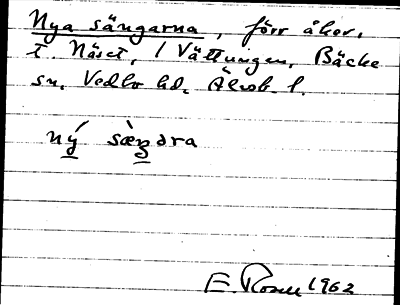 Nya sängarna, förr åker,
t. Näset, / Vättungen, Bäcke
sn, Vedbo hd, Älvsb. l.
ný sæŋəra
E. Rosell 1962